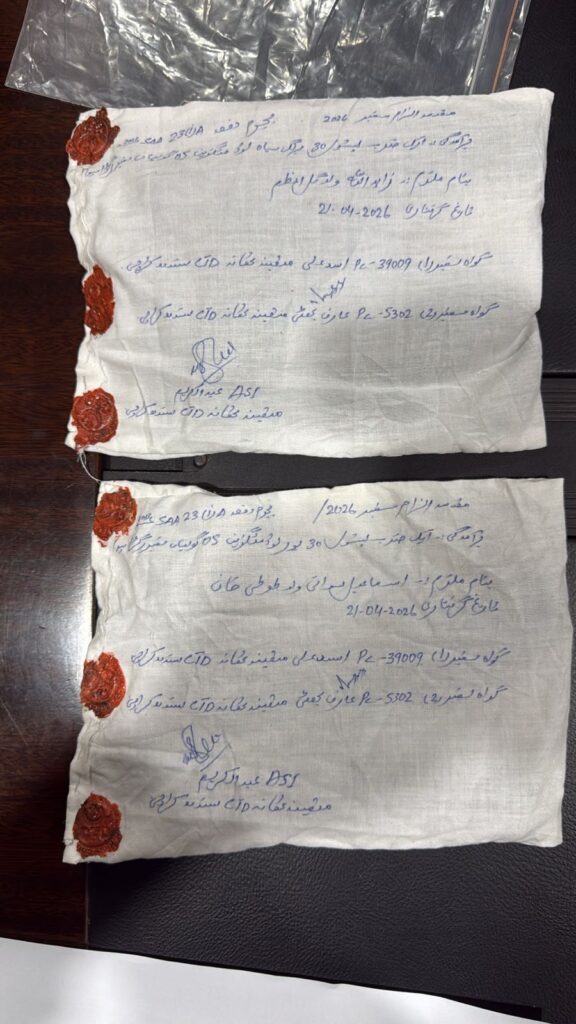 مقدمہ الزام نمبر 2026 بجرم دفعہ 23(i)A SAA
برآمدگی :۔ ایک ضرب پسٹل 30 بور سیاہ لوڈ میگزین 05 گولیاں
بنام ملزم :۔ زاہد اللہ ولد گل اعظم
تاریخ گرفتاری 21-04-2026
گواہ نمبر (1) PC-39009 اسد علی متعینہ تھانہ CTD سندھ کراچی
گواہ نمبر (2) PC-5302 عارف بھٹی متعینہ تھانہ CTD سندھ کراچی
ASI عبدالکریم
متعینہ تھانہ CTD سندھ کراچی
مقدمہ الزام نمبر /2026 بجرم دفعہ 23(i)A SAA
برآمدگی :۔ ایک ضرب پسٹل 30 بور لوڈ میگزین 05 گولیاں
بنام ملزم :۔ اسماعیل ولد طوطی خان
تاریخ گرفتاری 21-04-2026
گواہ نمبر (1) PC-39009 اسد علی متعینہ تھانہ CTD سندھ کراچی
گواہ نمبر (2) PC-5302 عارف بھٹی متعینہ تھانہ CTD سندھ کراچی
ASI عبدالکریم
متعینہ تھانہ CTD سندھ کراچی